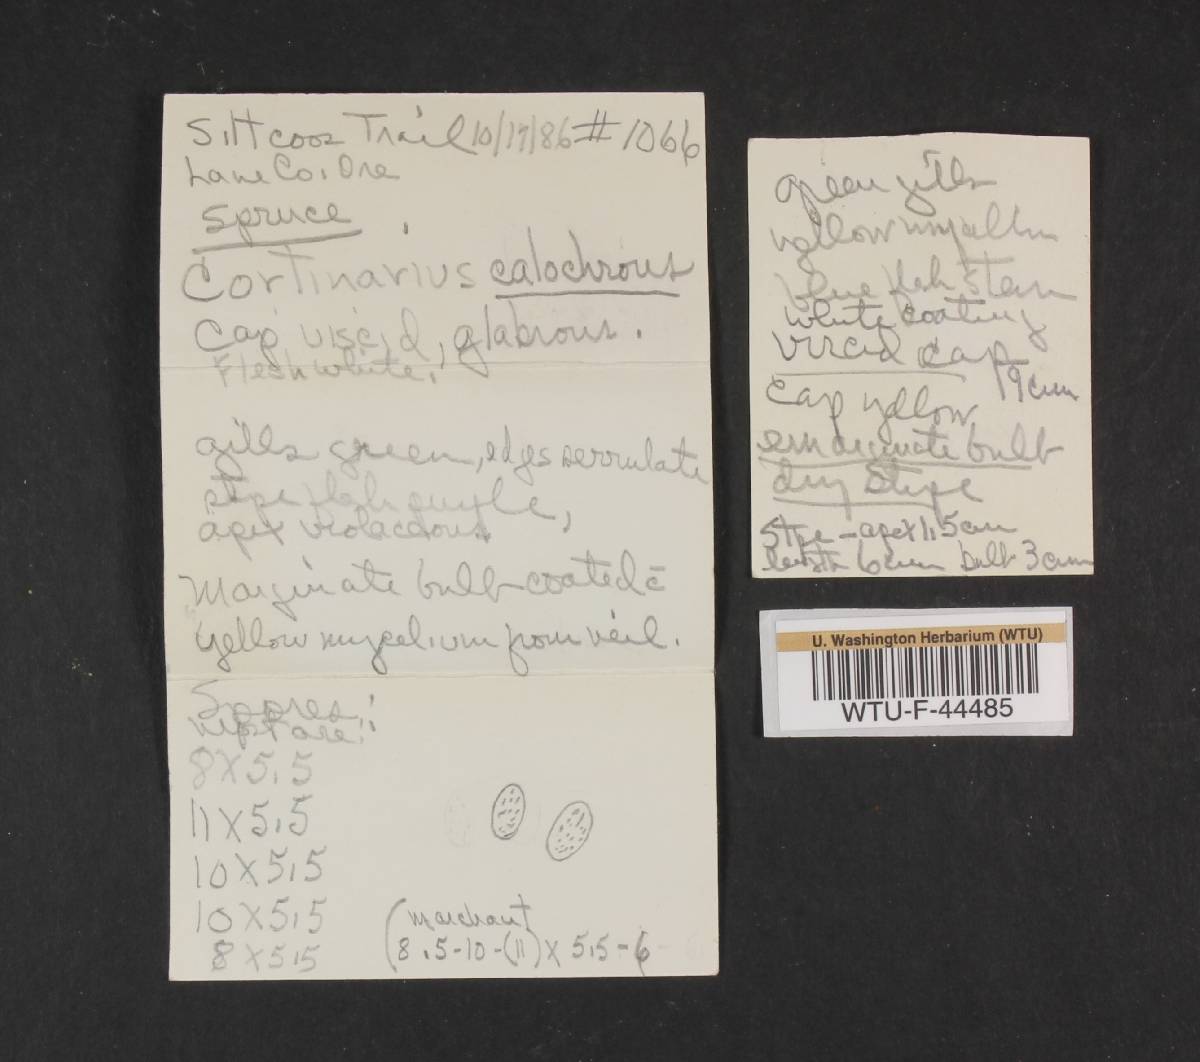 Siltcoos Trail 10/17/86 # 1066
Lane Co, Ore
Spruce
Cortinarius calochrous
Cap viscid, glabrous.
Flesh white,
gills green, edges serrulate
stipe flesh purple,
apex violaceous
Marginate bulb coated c̄
yellow mycelium from veil.
Spores:
8 X 5.5
11 X 5.5
10 X 5.5
10 X 5.5
8 X 5.5
(marchant
8.5-10-(11) X 5.5-6
green gills
yellow mycelium
blue flesh stem
white coating
viscid cap
9 cm
cap yellow
emarginate bulb
dry stipe
stipe - apex 1.5 cm
length 6 cm bulb 3 cm
U. Washington Herbarium (WTU)
WTU-F-44485